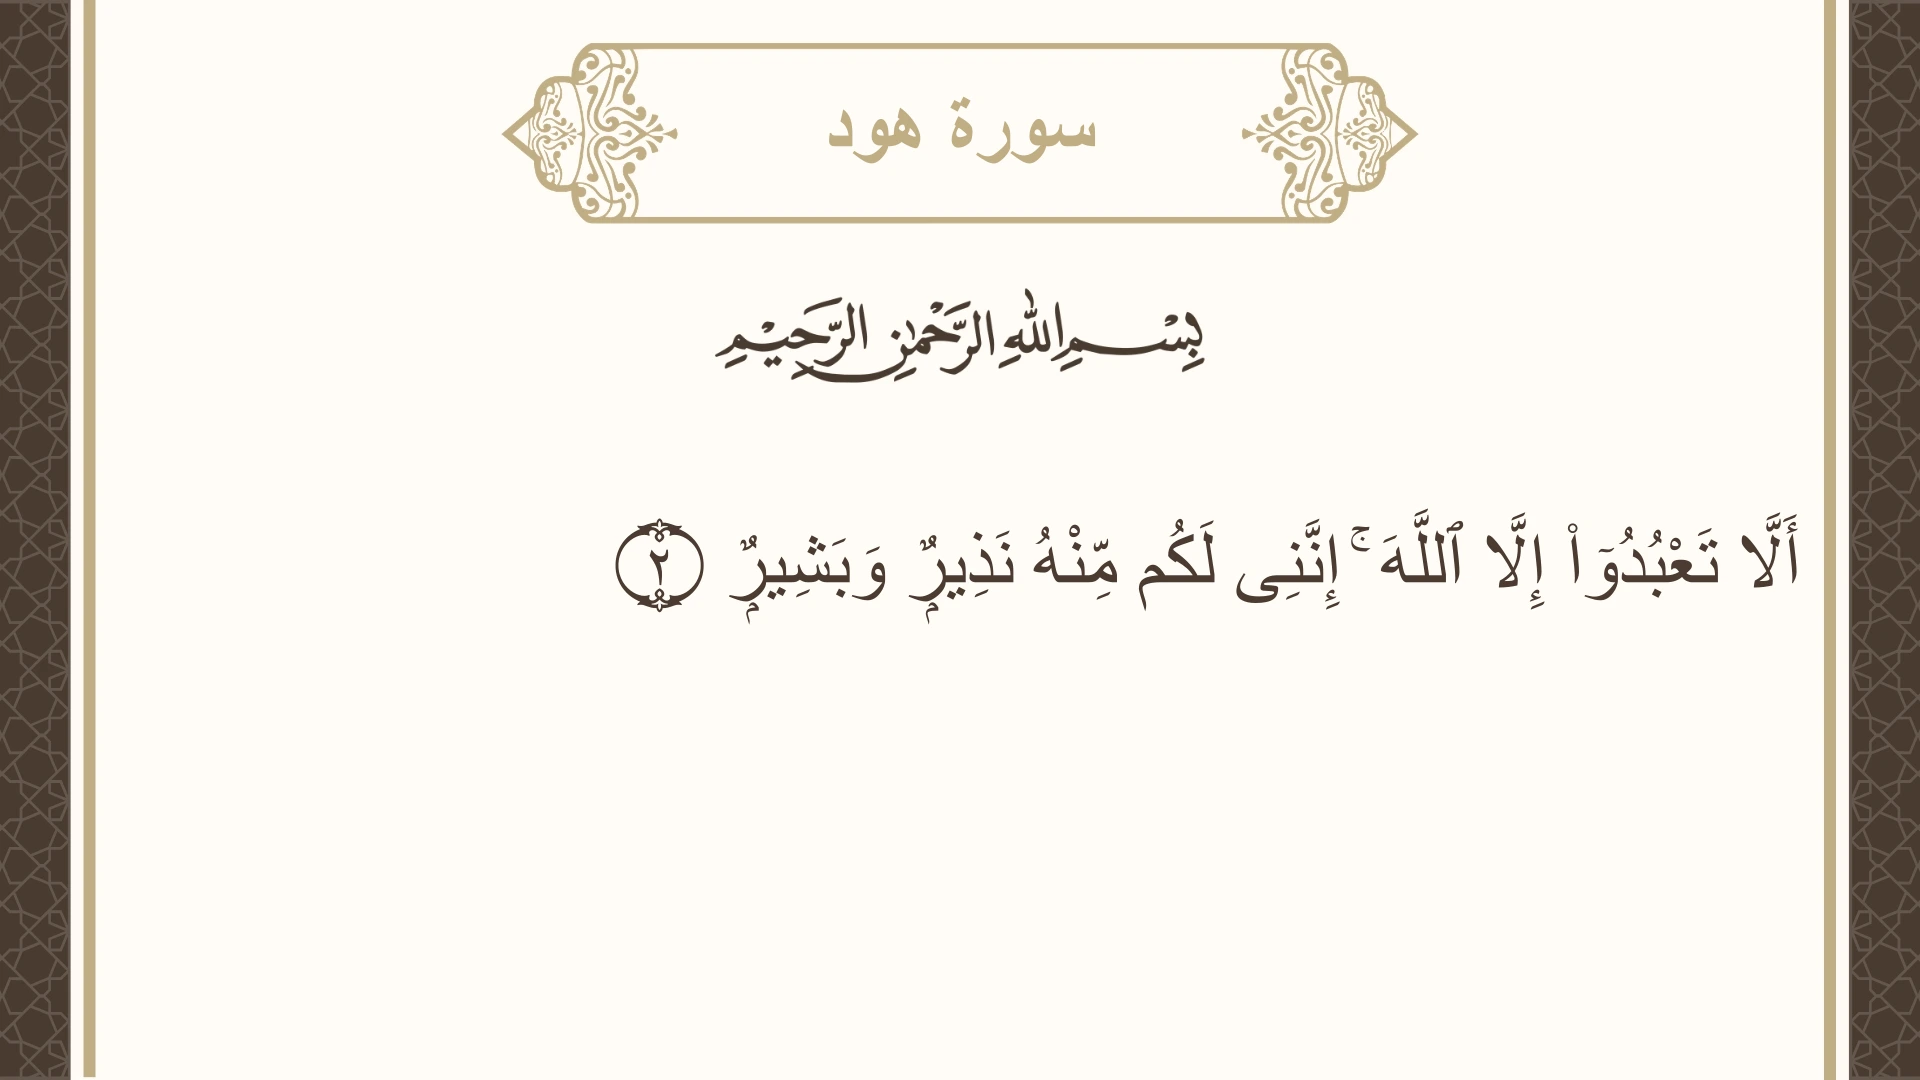 سورة هود
بِسْمِ اللهِ الرَّحْمٰنِ الرَّحِيْمِ
أَلَّا تَعْبُدُوٓا۟ إِلَّا ٱللَّهَ ۚ إِنَّنِى لَكُم مِّنْهُ نَذِيرٌۭ وَبَشِيرٌۭ ٢